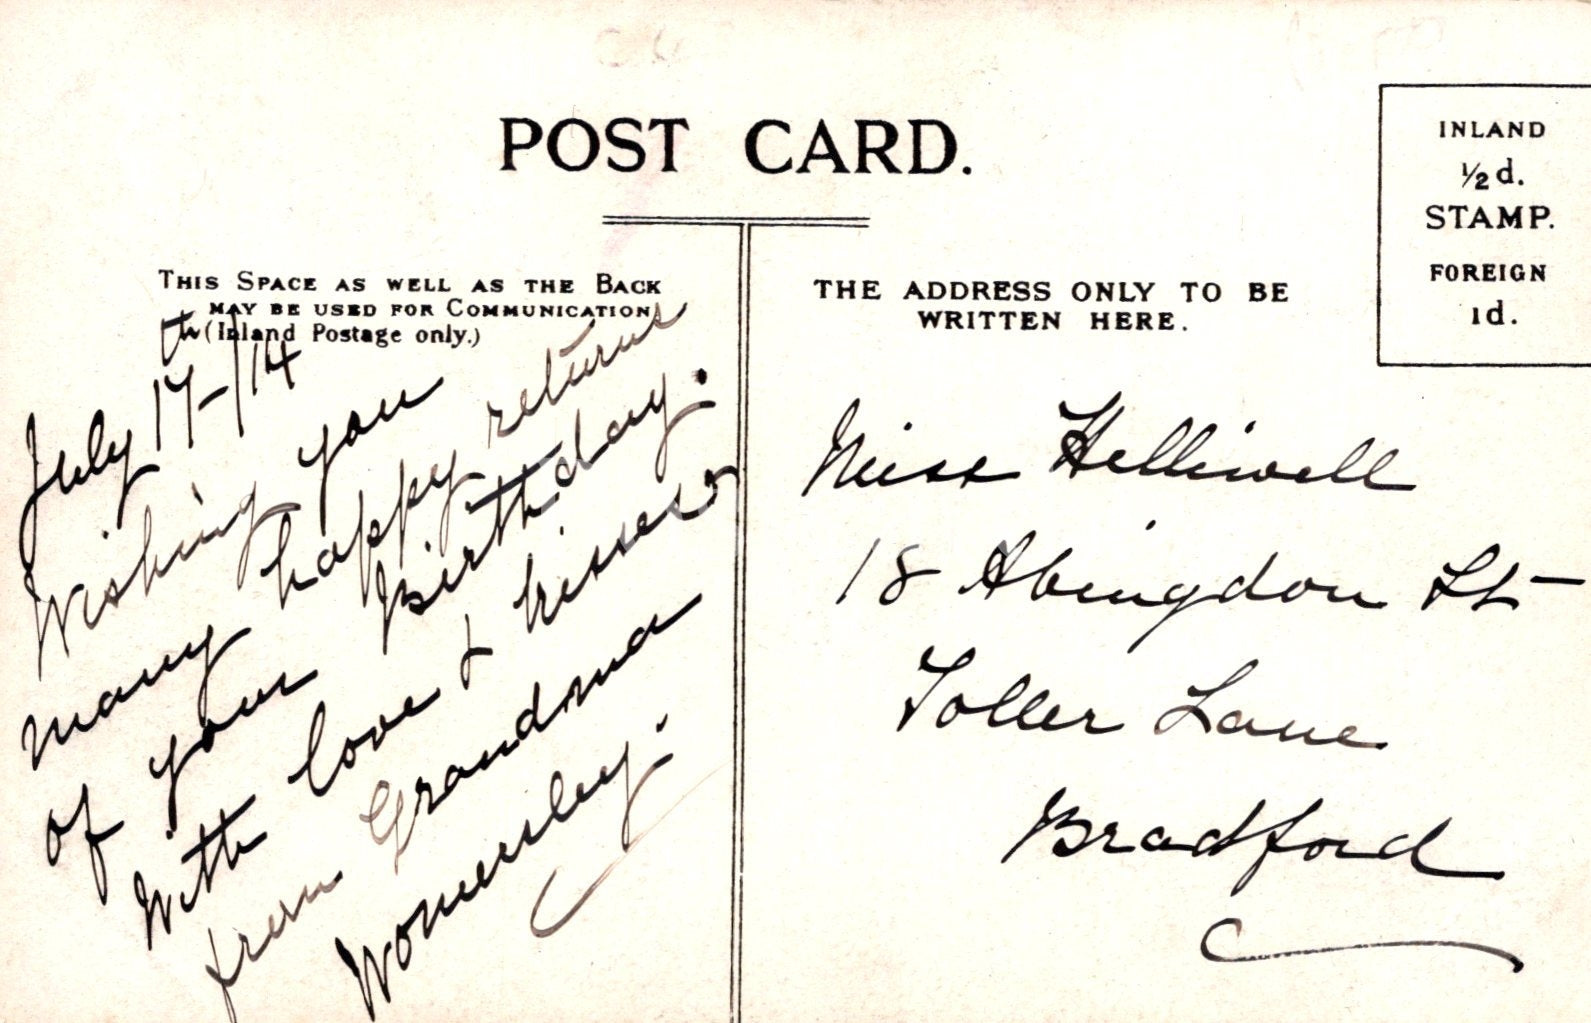 POST CARD.
INLAND
½d.
STAMP.
FOREIGN
1d.
THIS SPACE AS WELL AS THE BACK
MAY BE USED FOR COMMUNICATION
(Inland Postage only.)
July 17th-/14
Wishing you
many happy returns
of your Birthday.
With love & kisses
from Grandma
Womersley.
THE ADDRESS ONLY TO BE
WRITTEN HERE.
Miss Helliwell
18 Abingdon St
Toller Lane
Bradford